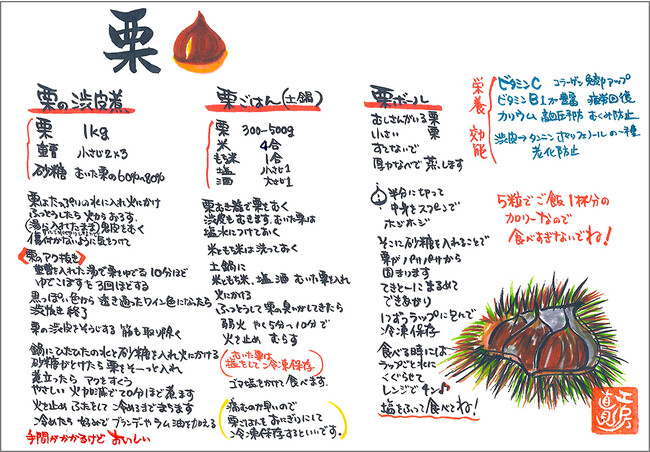 栗
栗の渋皮煮
栗 1kg
重曹 小さじ2×3
砂糖 むいた栗の60%〜80%
栗はたっぷりの水に入れ火にかけ
ふっとうしたら火からおろす。
(湯に入れたまま)鬼皮をむく
傷付かないように気をつけて
栗のアク抜き
重曹を入れた湯で栗をゆでる10分ほど
ゆでこぼすを3回ほどする
黒っぽい色から透き通ったワイン色になったら
渋抜き終了
栗の渋皮をそうじする 筋も取り除く
鍋にひたひたの水と砂糖を入れ火にかける
砂糖がとけたら栗をそーっと入れ
煮立ったらアクをすくう
やさしい火加減で20分ほど煮ます
火を止めふたをして冷めるまでまちます
冷めたら好みでブランデーやラム酒を加える
手間がかかるけどおいしい
栗ごはん(土鍋)
栗 300〜500g
米 4合
もち米 1合
塩 小さじ1
酒 大さじ1
栗むき器で栗をむく
渋皮もむきます。むいた栗は
塩水につけておく
米ともち米は洗っておく
土鍋に
米ともち米、塩、酒 むいた栗を入れ
火にかける
ふっとうして栗の臭いがしてきたら
弱火 やく5分〜10分で
火を止め むらす
むいた栗は
塩をして冷凍保存
ゴマ塩をかけて食べます.
痛むのが早いので
栗ごはんをおにぎりにして
冷凍保存するといいです。
栗ボール
おしりがまるい栗
小さい 栗
すてないで
厚かなべで蒸します
半分に切って
中身をスプーンで
ホジホジ
そこに砂糖を入れることで
栗がパサパサから
固まります
てきとーにまるめて
できあがり
1つずつラップに包んで
冷凍保存
食べる時には
ラップごと水に
くぐらせて
レンジでチン♪
塩をふって食べてね!
栄養 効能
ビタミンC コラーゲン 免疫アップ
ビタミンB1が豊富 疲労回復
カリウム 高血圧予防 むくみ防止
渋皮→タンニン ポリフェノールの一種
老化防止
5粒でご飯1杯分の
カロリーなので
食べすぎないでね!